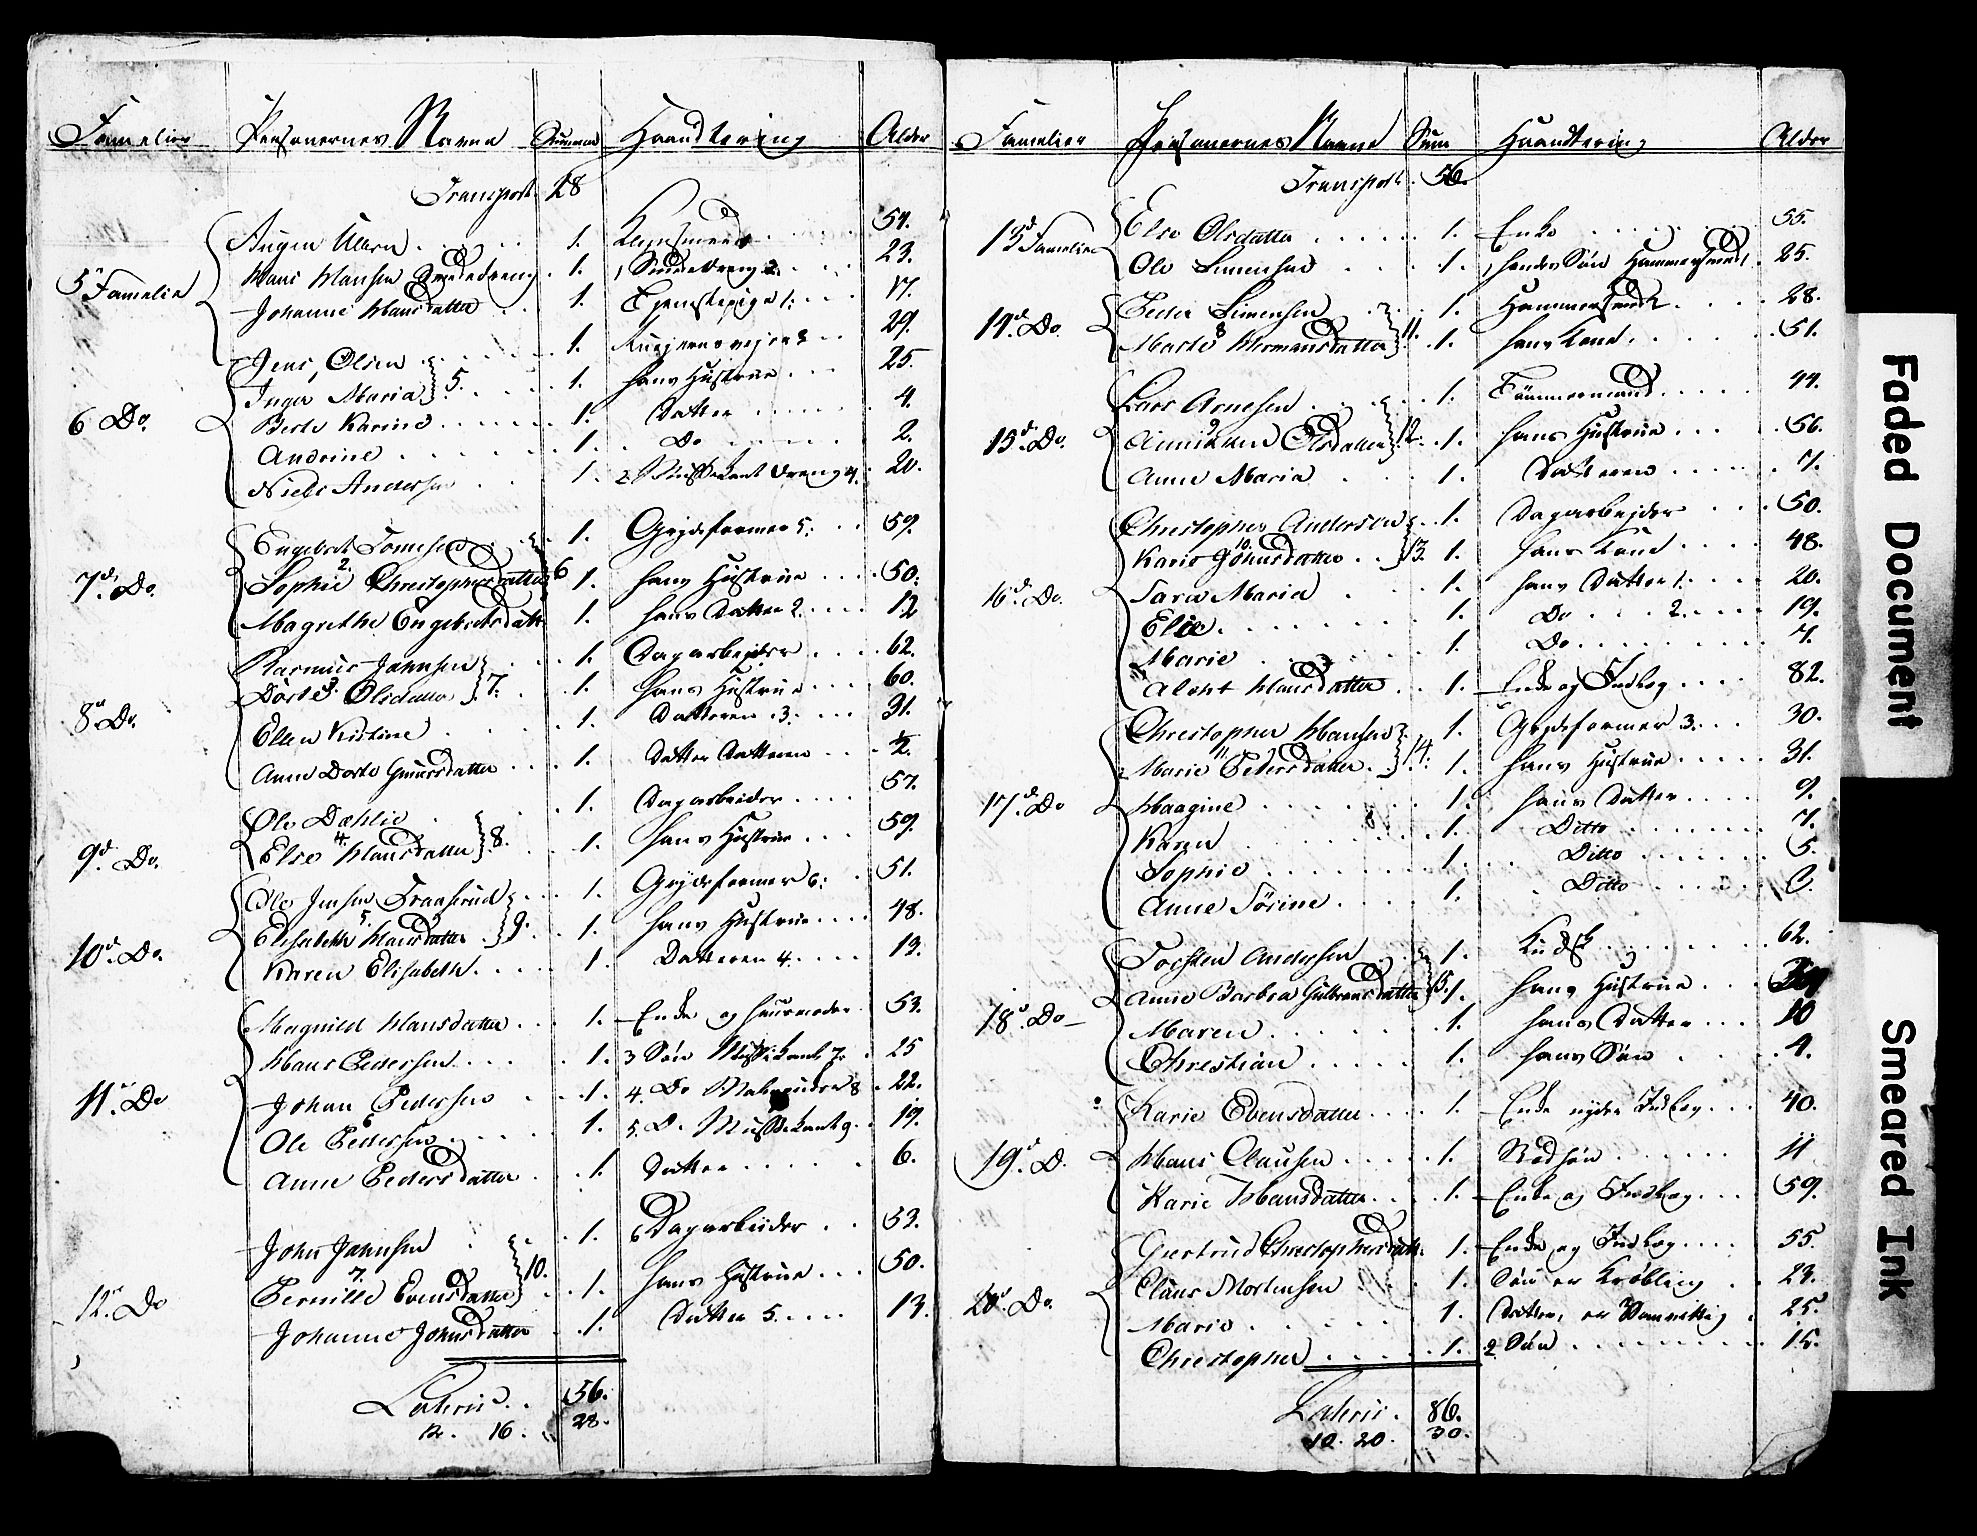 Familier Personernes Navne Summa Haandtering Alder
Transport 28
5te Familie
Hans Hansen 1. 23.
Johanne Hansdatter 1. Tjenstepige 1. 17.
6 Do.
Jens Olsen 1. 29.
Inger Maria 5. 1. hans Hustrue 25.
Berte Karine 1. Datter 4.
Andrine 1. Do 2.
Niels Andersen 1. 2 Musikant dreng 4. 20.
7de Do.
Engebret Tomesen 1. Grydeformer 5. 59.
Sophie Christophersdatter 2. 6 1. hans Hustrue 50.
Magrethe Engebretsdatt 1. hans Datter 2. 12
8de Do.
Rasmus Johnsen 1. Dagarbeyder 62.
Dorte Olsdatter 3. 7. 1. hans Hustrue 60.
Ellen Kistine 1. Datteren 3. 31.
Anne Dorte Gunersdatter 1. Datter Datteren ½.
9de Do.
Ole Dæhlie 1. Dagarbeider 57.
Else Hansdatter 4. 8. 1. hans Hustrue 59.
10de Do.
Ole Jensen Fransrud 1. Grydeformer 6. 51.
Elisabeth Hansdatter 5. 9. 1. hans Hustrue 48.
Karen Elisabeth 1. Datteren 4. 13.
11te Do
Magnild Hansdatter 1. Enke og 53.
Hans Pedersen 1. 3 Søn Musikant 7. 25
Johan Pedersen 1. 4. Do 8 22.
Ole Pedersen 1. 5. Do Musikant 9. 19.
Anne Pedersdatter 1. Datter 6.
12te Do
John Johnsen 1. 6 Dagarbeider 53.
Pernille Evensdatter 7. 10. 1. hans Hustrue 50.
Johanne Johnsdatter 1. Datter 5. 13.
Lateris 56.
12. 16. 28.
Familier Personernes Navne Sum Haandtering Alder
Transport 56.
13de Familie
Else Olsdatter 1. Enke 55.
Ole Simensen 1. hendes Søn Hammersmed 25.
14de Do.
Peder Simensen 1. Hammersmed 28.
Marte Hermansdatter 8 11. 1. hans Kone 51.
15de Do.
Lars Arnesen 1. Tømmermand 44.
Olsdatter 9 12. 1. hans Hustrue 56.
Anne Maria 1. Datteren 7.
16de Do.
Christopher Andersen 1. Dagarbejder 50.
Karie Johnsdatter 10. 13. 1. hans Kone 48.
Sara Maria 1. hans Datter 1. 20.
Elie 1. Do 2. 19.
Marie 1. Do 7.
Alent Hansdatter 1. Enke og Indlog 82.
17de Do
Christopher Hansen 1. Grydeformer 3. 30.
Marie Pedersdatter 11 14. 1. hans Hustrue 31.
Haagine 1. hans Datter 9.
Karen 1. Ditto 7.
Sophie 1. Ditto 5.
Anne Sørine 1. Ditto
18de Do
Torsten Andersen 1. Kudsk 62.
Anne Barbra Gulbransdatter 15. 1. hans Hustrue
Maren 1. hans Datter 10
Christian 1. hans Søn 4.
19de D.
Karie Evensdatter 1. Enke nyder Indlog 40.
Hans Clausen 1. 11
Karie Hansdatter 1. Enke og Indlog 59.
20de Do.
Giertrud Christophersdatt. 1. Enke og Indlog 55.
Claus Mortensen 1. Søn er Krøbling 23.
Marie 1. Datter, er Vanvittig 25.
Christopher 1. 2 Søn 15.
Lateris. 86.
10. 20. 30.
Faded Document
Smeared Ink